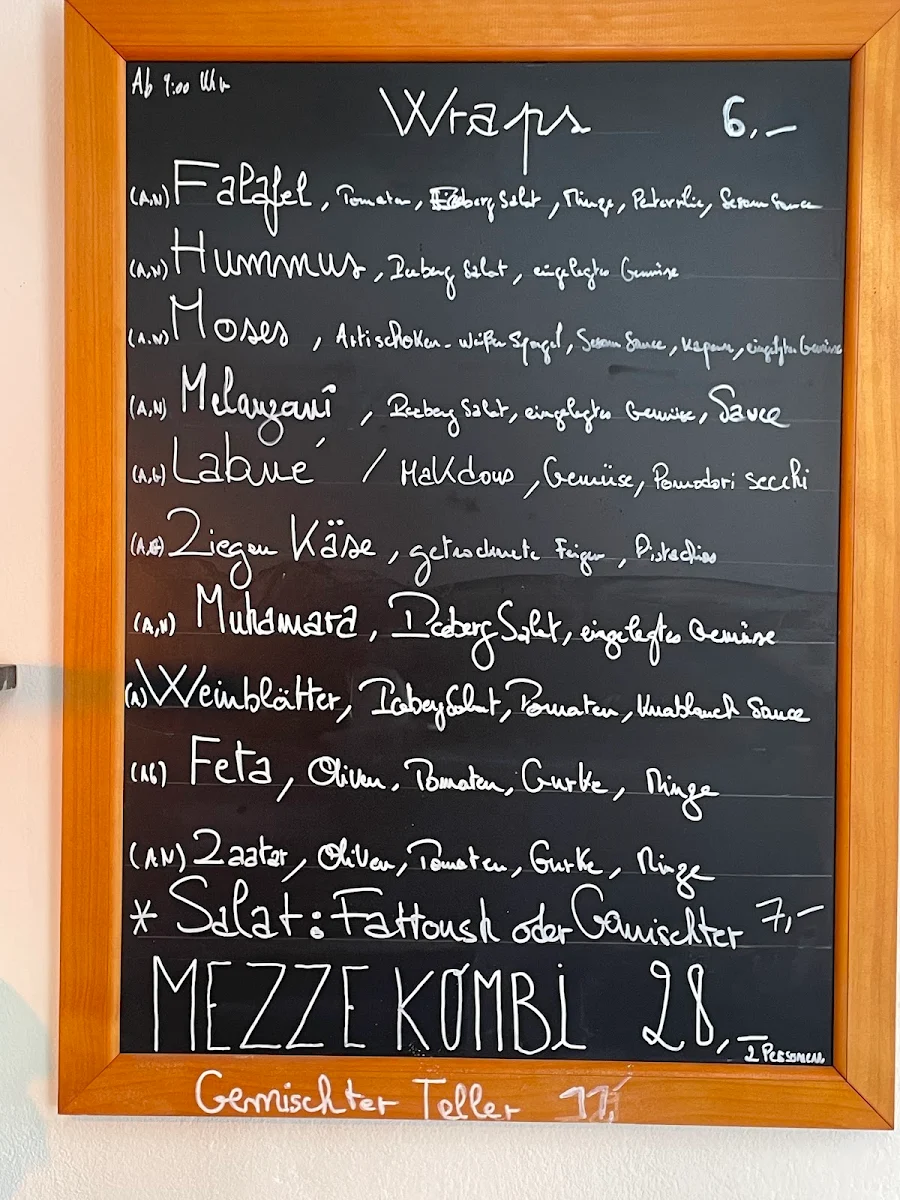 Ab 9:00 Uhr
Wraps 6,-
(A,N) Falafel, Tomaten, Eisberg Salat, Minze, Petersilie, Sesam Sauce
(A,N) Hummus, Iceberg Salat, eingelegtes Gemüse
(A,N) Moses, Artischoken - weißer Spargel, Sesam Sauce, Kapern, eingelegtes Gemüse
(A,N) Melanzani, Iceberg Salat, eingelegtes Gemüse, Sauce
(A,G) Labné / MaKdous, Gemüse, Pomodori secchi
(A,G) Ziegen Käse, getrocknete Feigen, Pistachios
(A,N) Muhamara, Iceberg Salat, eingelegtes Gemüse
(A) Weinblätter, Iceberg Salat, Tomaten, Knoblauch Sauce
(AG) Feta, Oliven, Tomaten, Gurke, Minze
(AN) Zaatar, Oliven, Tomaten, Gurke, Minze
* Salat: Fattoush oder Gemischter 7,-
MEZZE KOMBI 28,-
2 Personen
Gemischter Teller 11,-